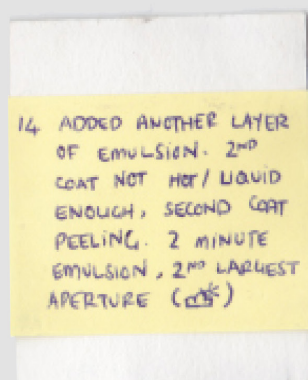 14 ADDED ANOTHER LAYER
OF EMULSION. 2ND
COAT NOT HOT/LIQUID
ENOUGH, SECOND COAT
PEELING. 2 MINUTE
EMULSION, 2ND LARGEST
APERTURE ( )